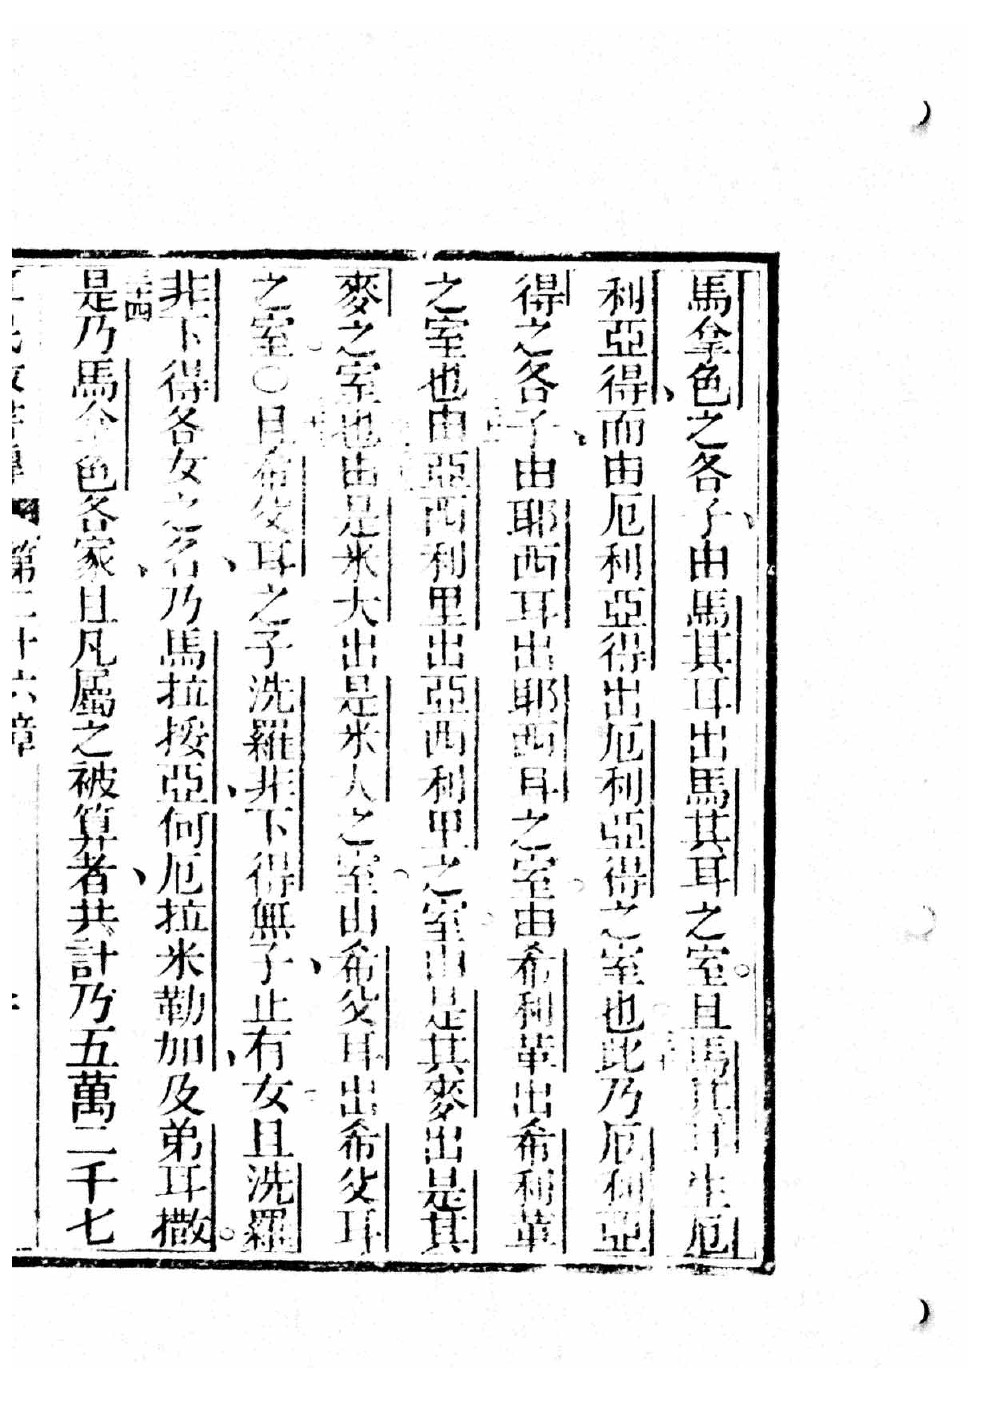 馬拿色之各子由馬其耳出馬其耳之室且馬其耳生厄
利亞得而由厄利亞得出厄利亞得之室也此乃厄利亞
得之各子由耶西耳出耶西耳之室由希利革出希利革
之室也由亞西利里出亞西利里之室由是其麥出是其
麥之室也由是米大出是米大之室由希肥耳出希肥耳
之室〇且希肥耳之子洗羅非下得無子止有女且洗羅
非下得各女之名乃馬拉挼亞何厄拉米勒加及弟耳撒
三十四
是乃馬拿色各家且凡屬之被算者共計乃五萬二千七
第二十六章